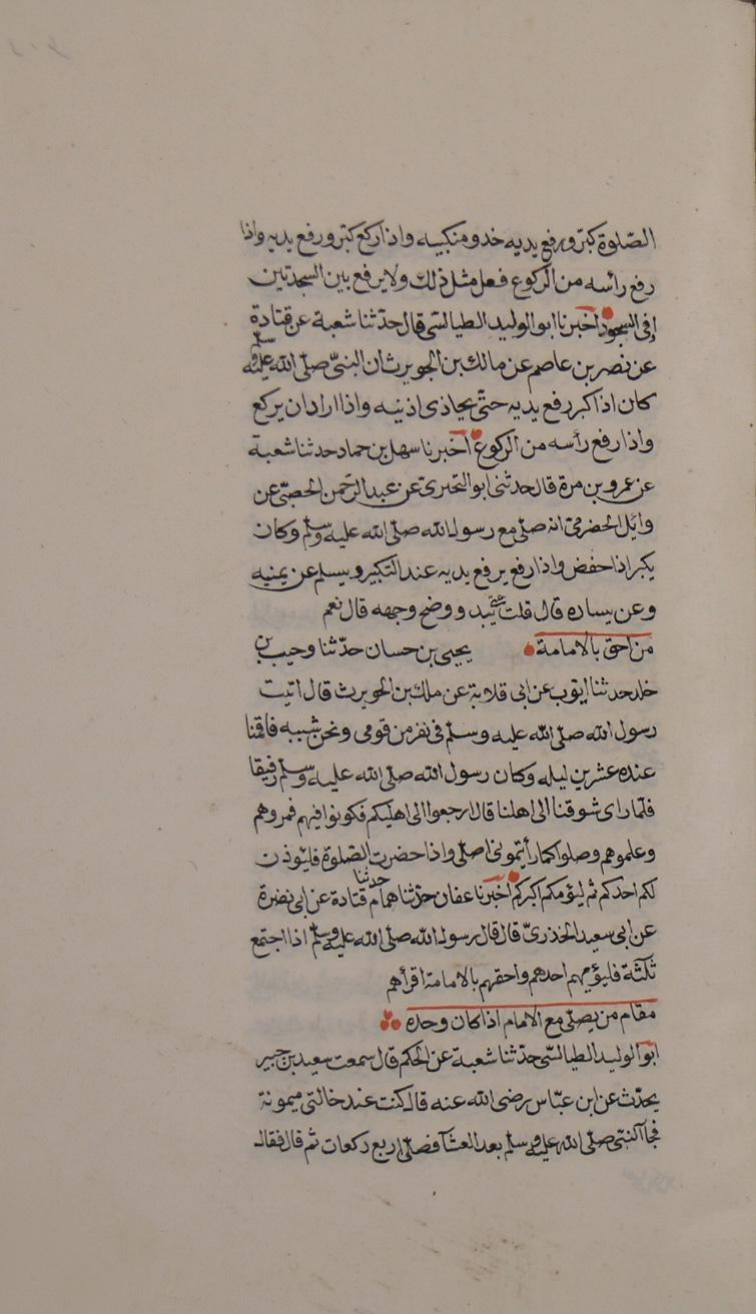 الصلوة كبر ورفع يديه حذو منكبيه واذا ركع كبر ورفع يديه واذا
رفع رأسه من الركوع فعل مثل ذلك ولا يرفع بين السجدتين
او في السجود اخبرنا ابو الوليد الطيالسى قال حدثنا شعبة عن قتادة
عن نصر بن عاصم عن مالك بن الحويرث ان النبى صلى الله عليه وسلم
كان اذا كبر رفع يديه حتى يحاذى اذنيه واذا اراد ان يركع
واذا رفع رأسه من الركوع اخبرنا سهل بن حماد حدثنا شعبة
عن عمرو بن مرة قال حدثنى ابو البحترى عن عبد الرحمن الحصبى عن
وائل الحضرمى انه صلى مع رسول الله صلى الله عليه وسلم وكان
يكبر اذا خفض واذا رفع يرفع يديه عند التكبير ويسلم عن يمينه
وعن يساره قال قلت حتى يبد ووضح وجهه قال نعم
من احق بالامامة يحيى بن حسان حدثنا وهيب بن
خلد حدثنا ايوب عن ابى قلابة عن ملك بن الحويرث قال اتيت
رسول الله صلى الله عليه وسلم فى نفر من قومى ونحن شببه فاقمنا
عنده عشرين ليله وكان رسول الله صلى الله عليه وسلم رفيقا
فلما راى شوقنا الى اهلنا قال ارجعوا الى اهليكم فكونوا فيهم فمروهم
وعلموهم وصلوا كما رأيتمونى اصلى واذا حضرت الصلوة فليؤذن
لكم احدكم ثم ليؤمكم اكبركم اخبرنا عفان حدثنا همام حدثنا قتادة عن ابى نضرة
عن ابى سعيد الخذرى قال قال رسول الله صلى الله عليه وسلم اذا اجتمع
ثلثة فليؤمهم احدهم واحقهم بالامامة اقرأهم
مقام من يصلى مع الامام اذا كان وحده
ابو الوليد الطيالسى حدثنا شعبة عن الحكم قال سمعت سعيد بن جبير
يحدث عن ابن عباس رضى الله عنه قال كنت عند خالتى ميمونة
فجا النبى صلى الله عليه وسلم بعد العشآ فصلى اربع ركعات ثم قال فقال